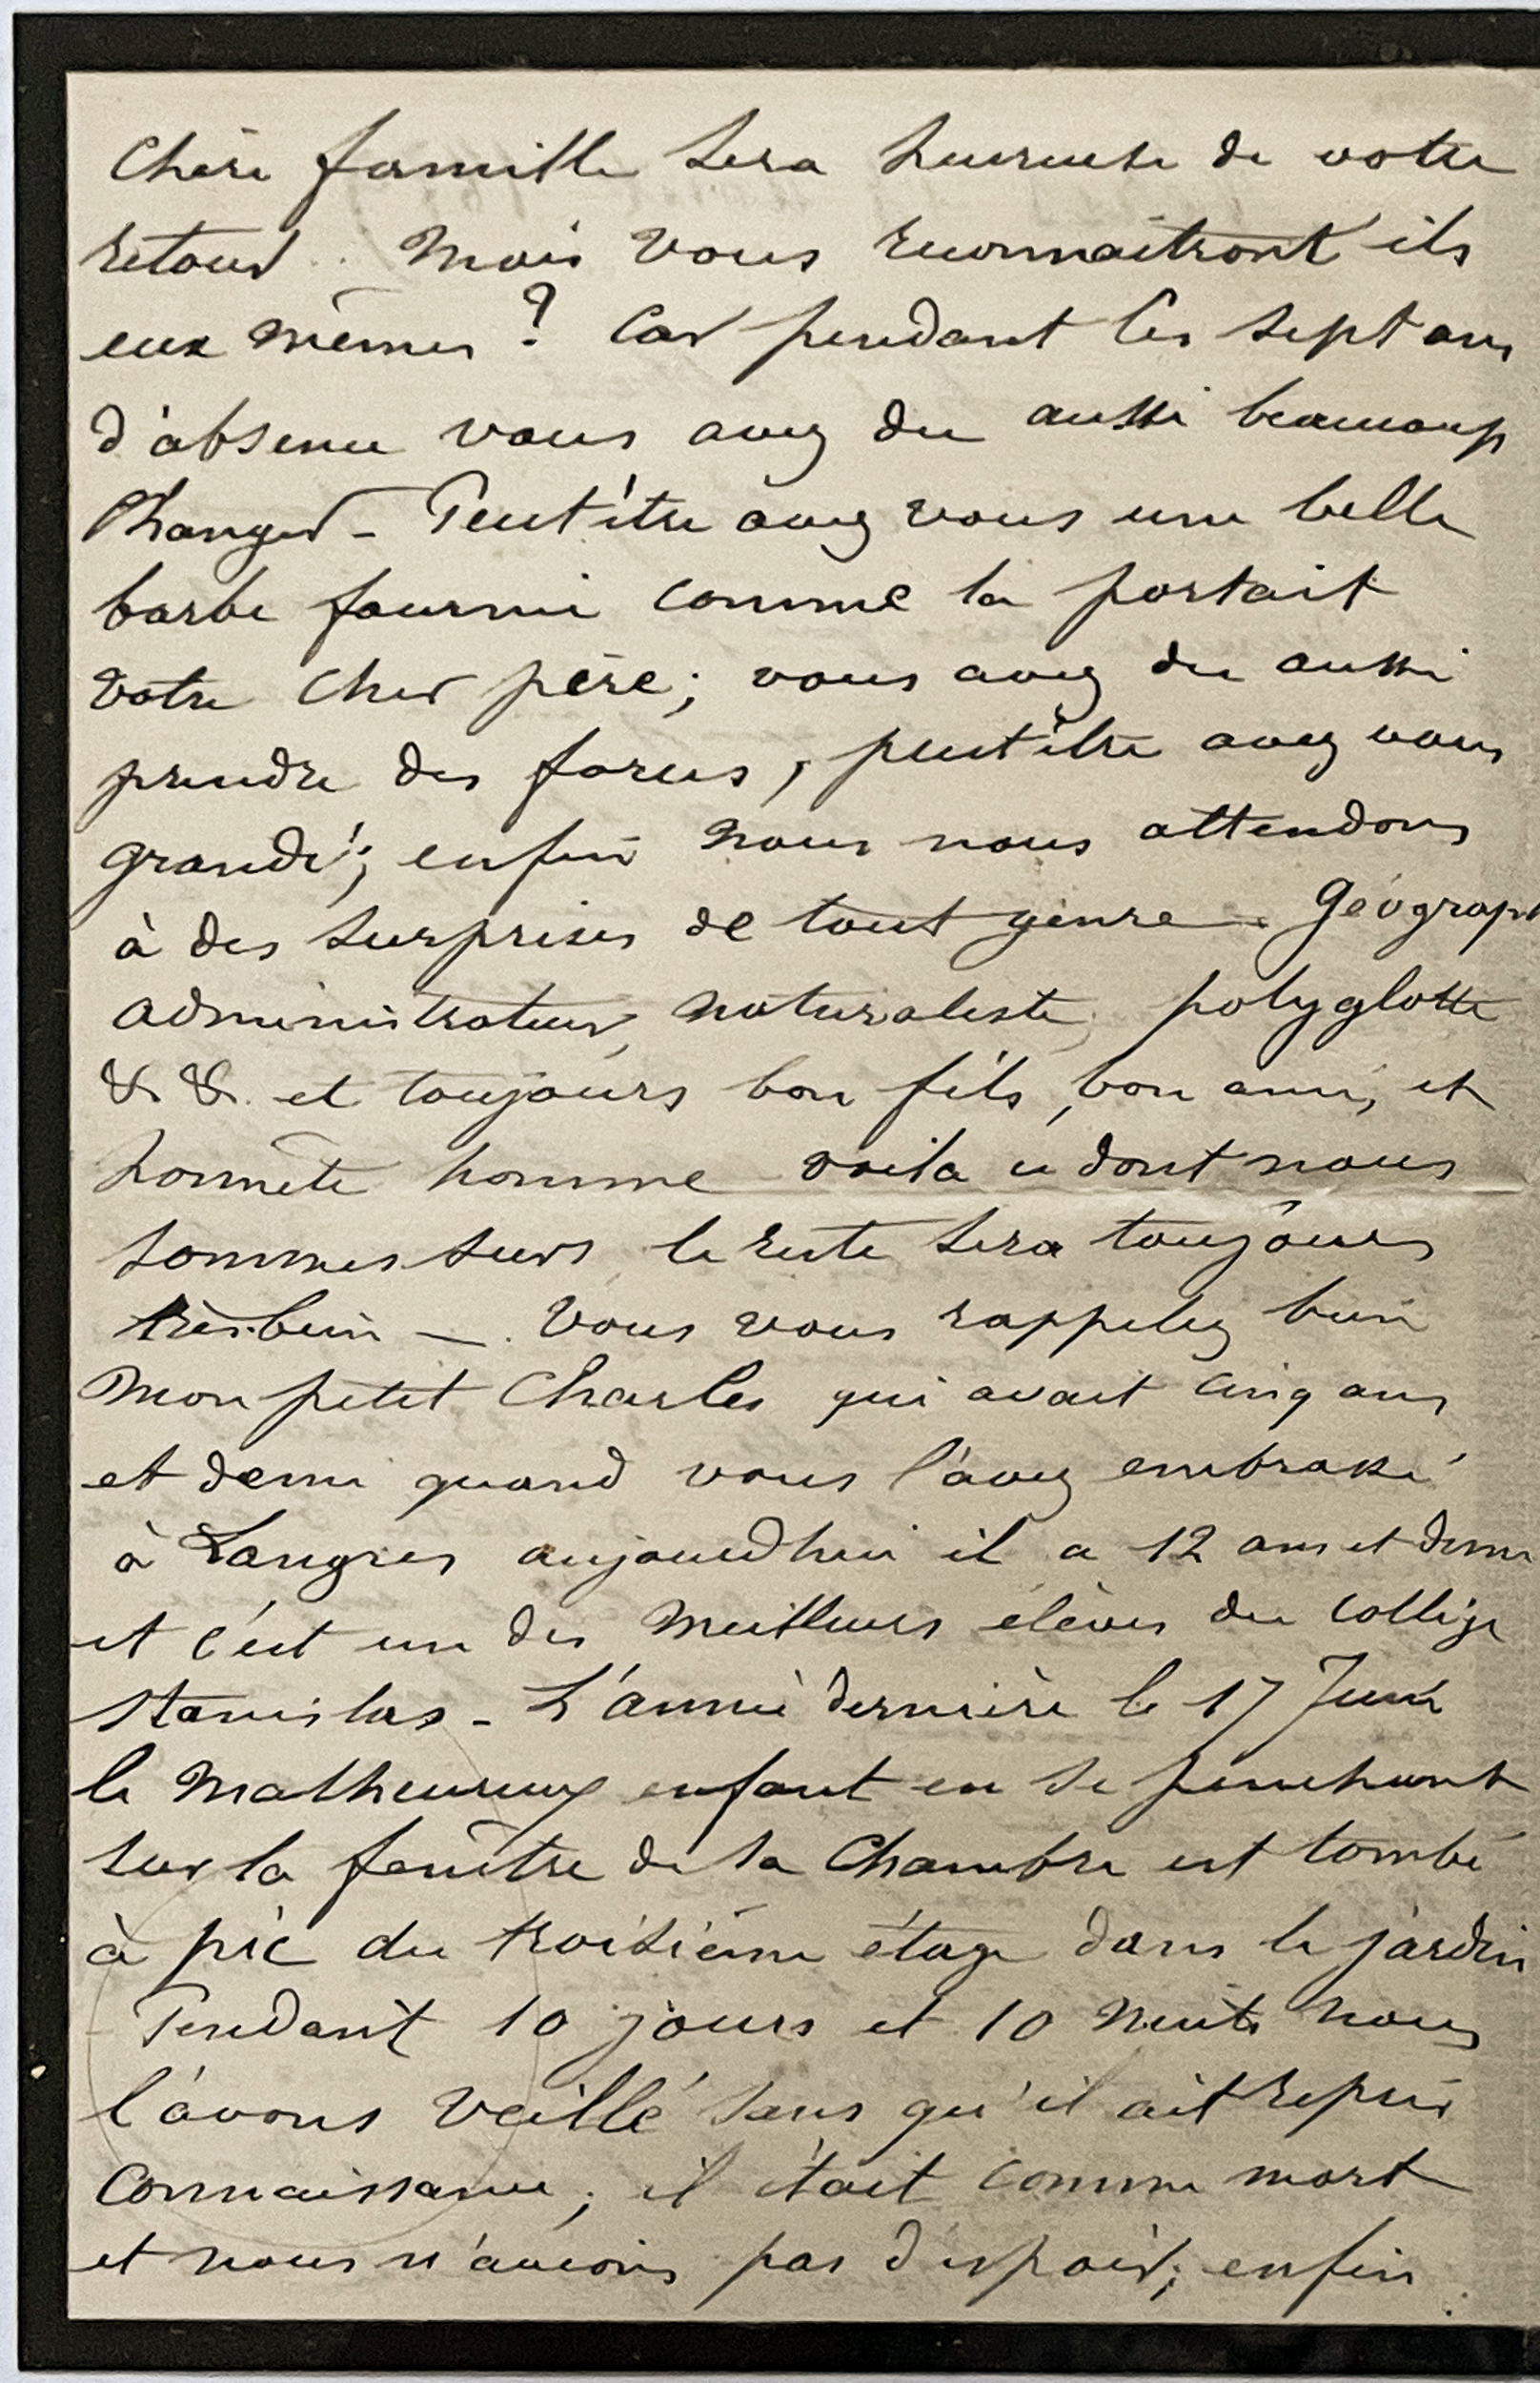 Chère famille sera heureuse de votre
retour. Mais vous reconnaitront ils
eux mêmes ? Car pendant les sept ans
d'absence vous avez du aussi beaucoup
Changer - Peut être avez vous une belle
barbe fournie comme la portait
votre cher père; vous avez du aussi
prendre des forces, peut être avez vous
grandi; enfin nous nous attendons
à des surprises de tout genre - Géograph
administrateur, naturaliste, polyglotte
& & et toujours bon fils, bon ami, et
honnête homme voila ce dont nous
sommes surs, le reste sera toujours
très bien - . Vous vous rappelez bien
Mon petit Charles qui avait cinq ans
et demi quand vous l'avez embrassé
à Langres aujourd'hui il a 12 ans et demi
et c'est un des Meilleurs élèves du Collège
Stanislas - L'année dernière le 17 Juin
le Malheureux enfant en se penchant
sur la fenêtre de sa Chambre est tombé
à pic du troisième étage dans le jardin
- Pendant 10 jours et 10 nuits nous
l'avons Veillé sans qu'il ait repris
Connaissance; il était comme mort
et nous n'avions pas d'espoir; enfin